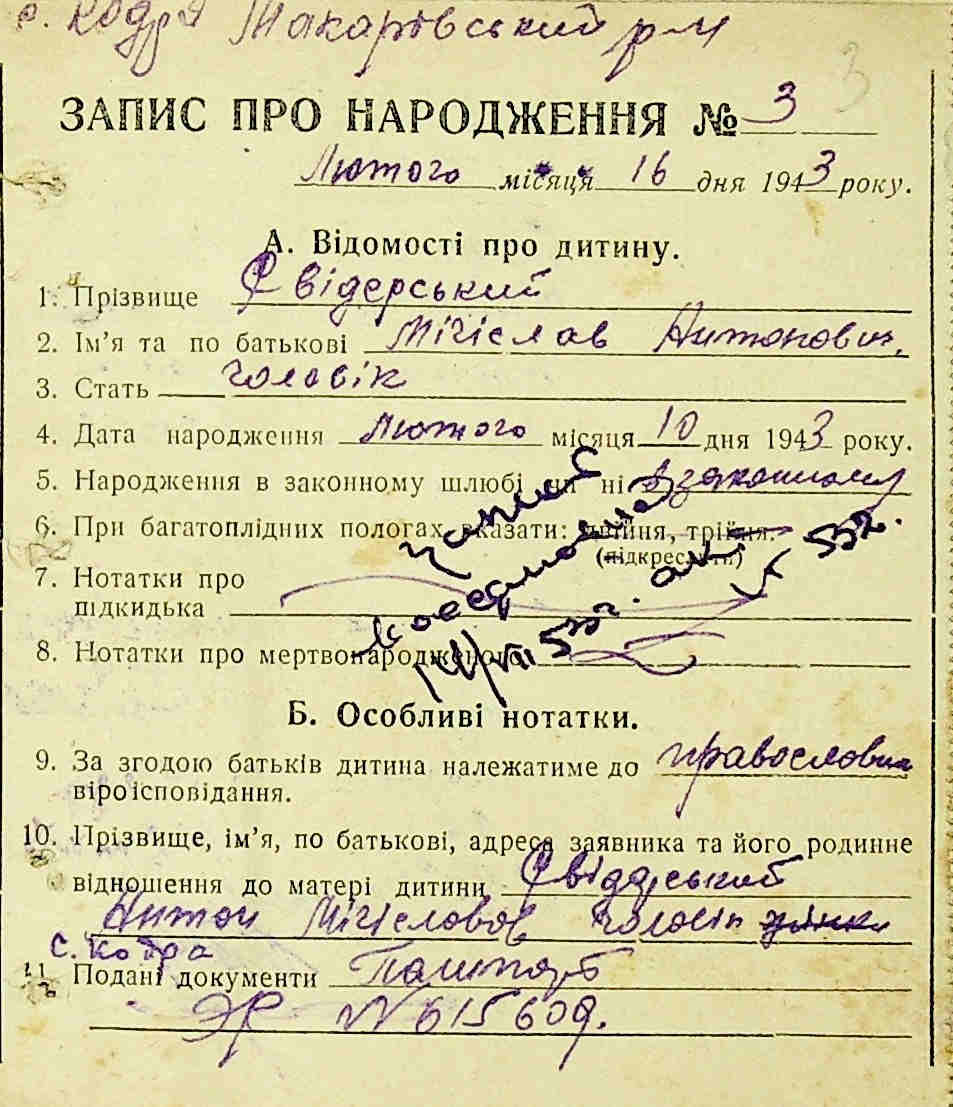 с. Кодра Макарівський р-н
3
ЗАПИС ПРО НАРОДЖЕННЯ № 3
Лютого місяця 16 дня 1943 року.
А. Відомості про дитину.
1. Прізвище Свідерський
2. Ім’я та по батькові Мічіслав Антонович
3. Стать Чоловік
4. Дата народження Лютого місяця 10 дня 1943 року.
5. Народження в законному шлюбі чи ні в законному
6. При багатоплідних пологах вказати: двійня, трійня.
(підкреслити)
7. Нотатки про
підкидька
8. Нотатки про мертвонародженого
53 г.
Б. Особливі нотатки.
9. За згодою батьків дитина належатиме до православн
віроісповідання.
10. Прізвище, ім’я, по батькові, адреса заявника та його родинне
відношення до матері дитини Свідерський
Антон Мічіславов
с. Кодра
11. Подані документи Пашпорт
№ 615609.